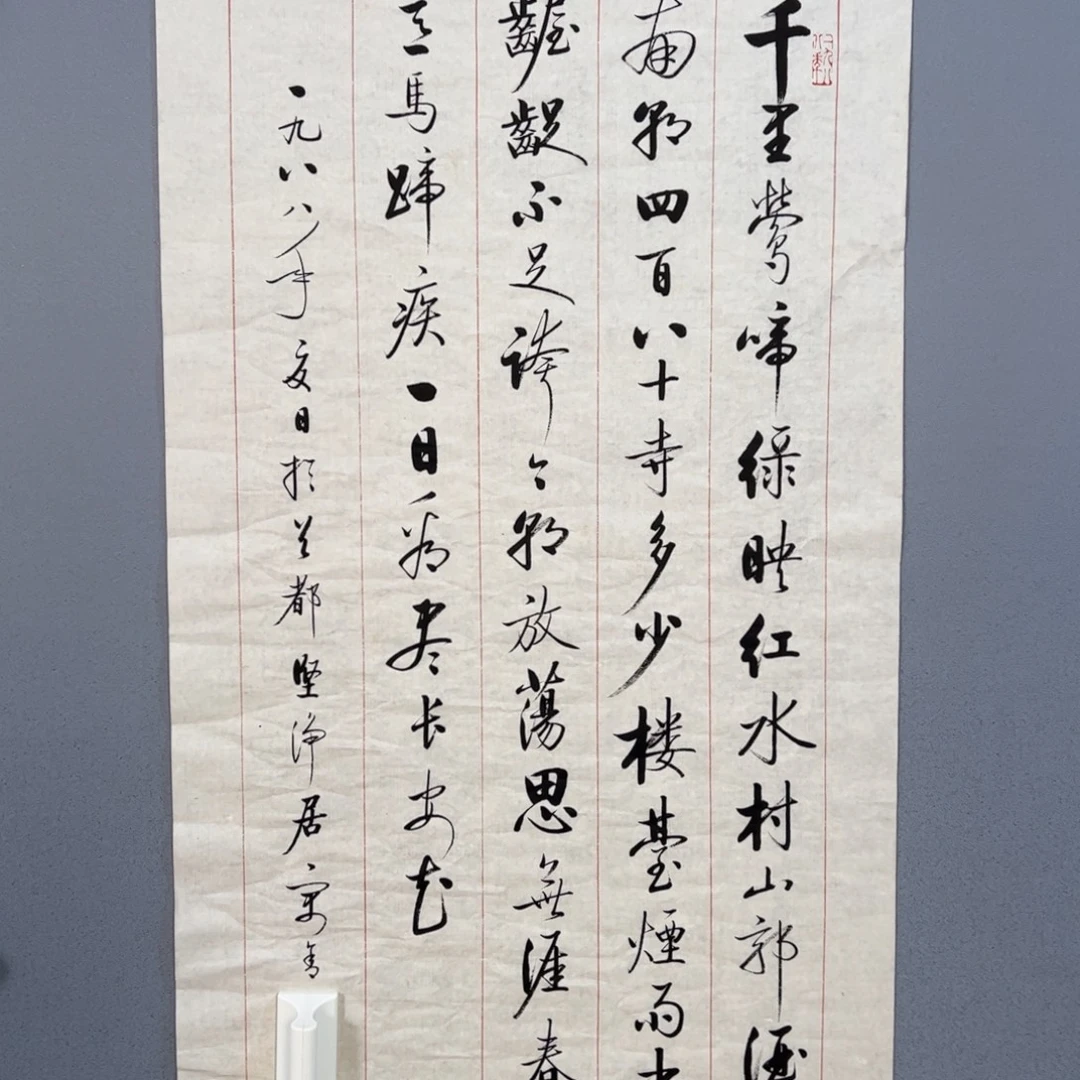 千里鶯啼绿映红水村山郭酒
南朝四百八十寺多少楼臺煙雨中
齷齪不足誇今朝放蕩思無涯春
意馬蹄疾一日看尽长安花
一九八八年夏日於首都坚净居